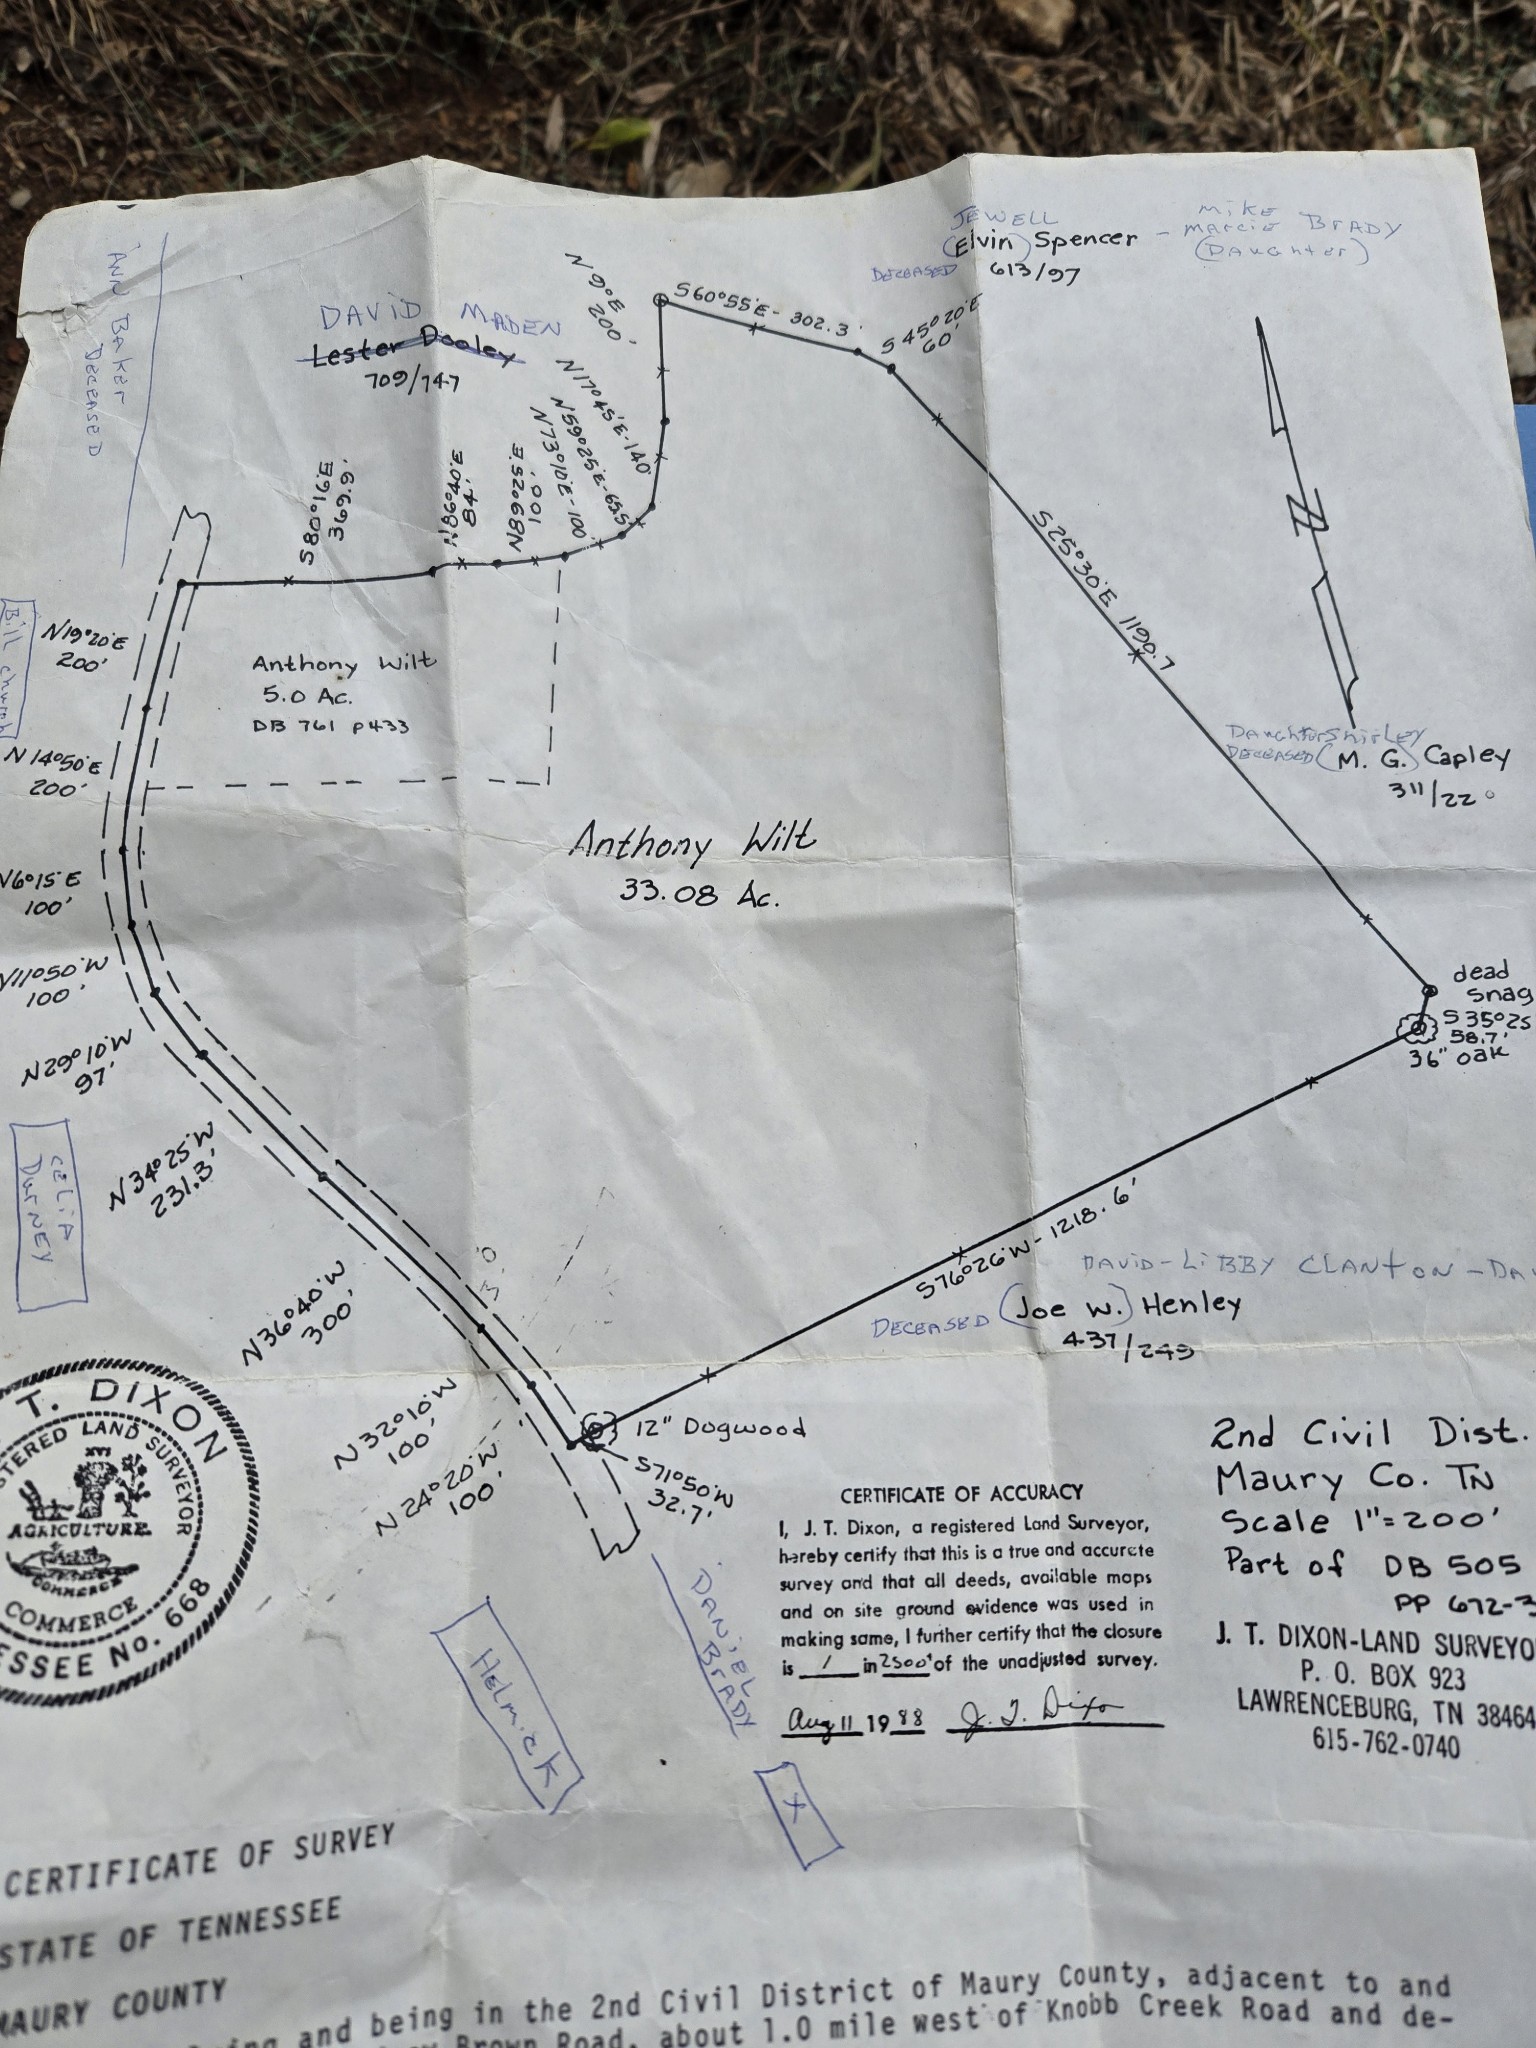 JEWELL
(Elvin) Spencer -
DECEASED 613/97
MIKE
MARCIE BRADY
(DAUGHTER)
ANN BAKER
DECEASED
DAVID MADEN
Lester Dooley
709/747
N 9° E
200'
S 60° 55' E - 302.3'
S 45° 20' E
60'
N 17° 45' E - 140'
N 59° 25' E - 65.5'
N 73° 10' E - 100'
N 89° 25' E
100'
N 86° 40' E
84'
S 80° 16' E
369.9'
S 25° 30' E 1190.7
Bill
N 19° 20' E
200'
Anthony Wilt
5.0 Ac.
DB 761 P433
N 14° 50' E
200'
DAUGHTER SHIRLEY
DECEASED (M. G.) Capley
311/22
Anthony Wilt
33.08 Ac.
N 6° 15' E
100'
N 11° 50' W
100'
dead
snag
S 35° 25
58.7'
36" oak
N 29° 10' W
97'
CELIA
DURNEY
N 34° 25' W
231.3'
S 76° 26' W - 1218.6'
DAVID - LIBBY CLANTON -
DECEASED (Joe W.) Henley
437/249
N 36° 40' W
300'
N 32° 10' W
100'
N 24° 20' W
100'
12" Dogwood
S 71° 50' W
32.7'
T. DIXON
STERED LAND SURVEYOR
XVI
AGRICULTURE
COMMERCE
COMMERCE
ESSEE No. 668
HELMICK
DANIEL
BRADY
X
CERTIFICATE OF ACCURACY
I, J. T. Dixon, a registered Land Surveyor,
hereby certify that this is a true and accurate
survey and that all deeds, available maps
and on site ground evidence was used in
making same, I further certify that the closure
is 1 in 2500' of the unadjusted survey.
Aug 11 1988 J. T. Dixon
2nd Civil Dist.
Maury Co. TN
Scale 1"=200'
Part of DB 505
PP 672-3
J. T. DIXON-LAND SURVEYO
P. O. BOX 923
LAWRENCEBURG, TN 38464
615-762-0740
CERTIFICATE OF SURVEY
STATE OF TENNESSEE
MAURY COUNTY
and being in the 2nd Civil District of Maury County, adjacent to and
Brown Road, about 1.0 mile west of Knobb Creek Road and de-